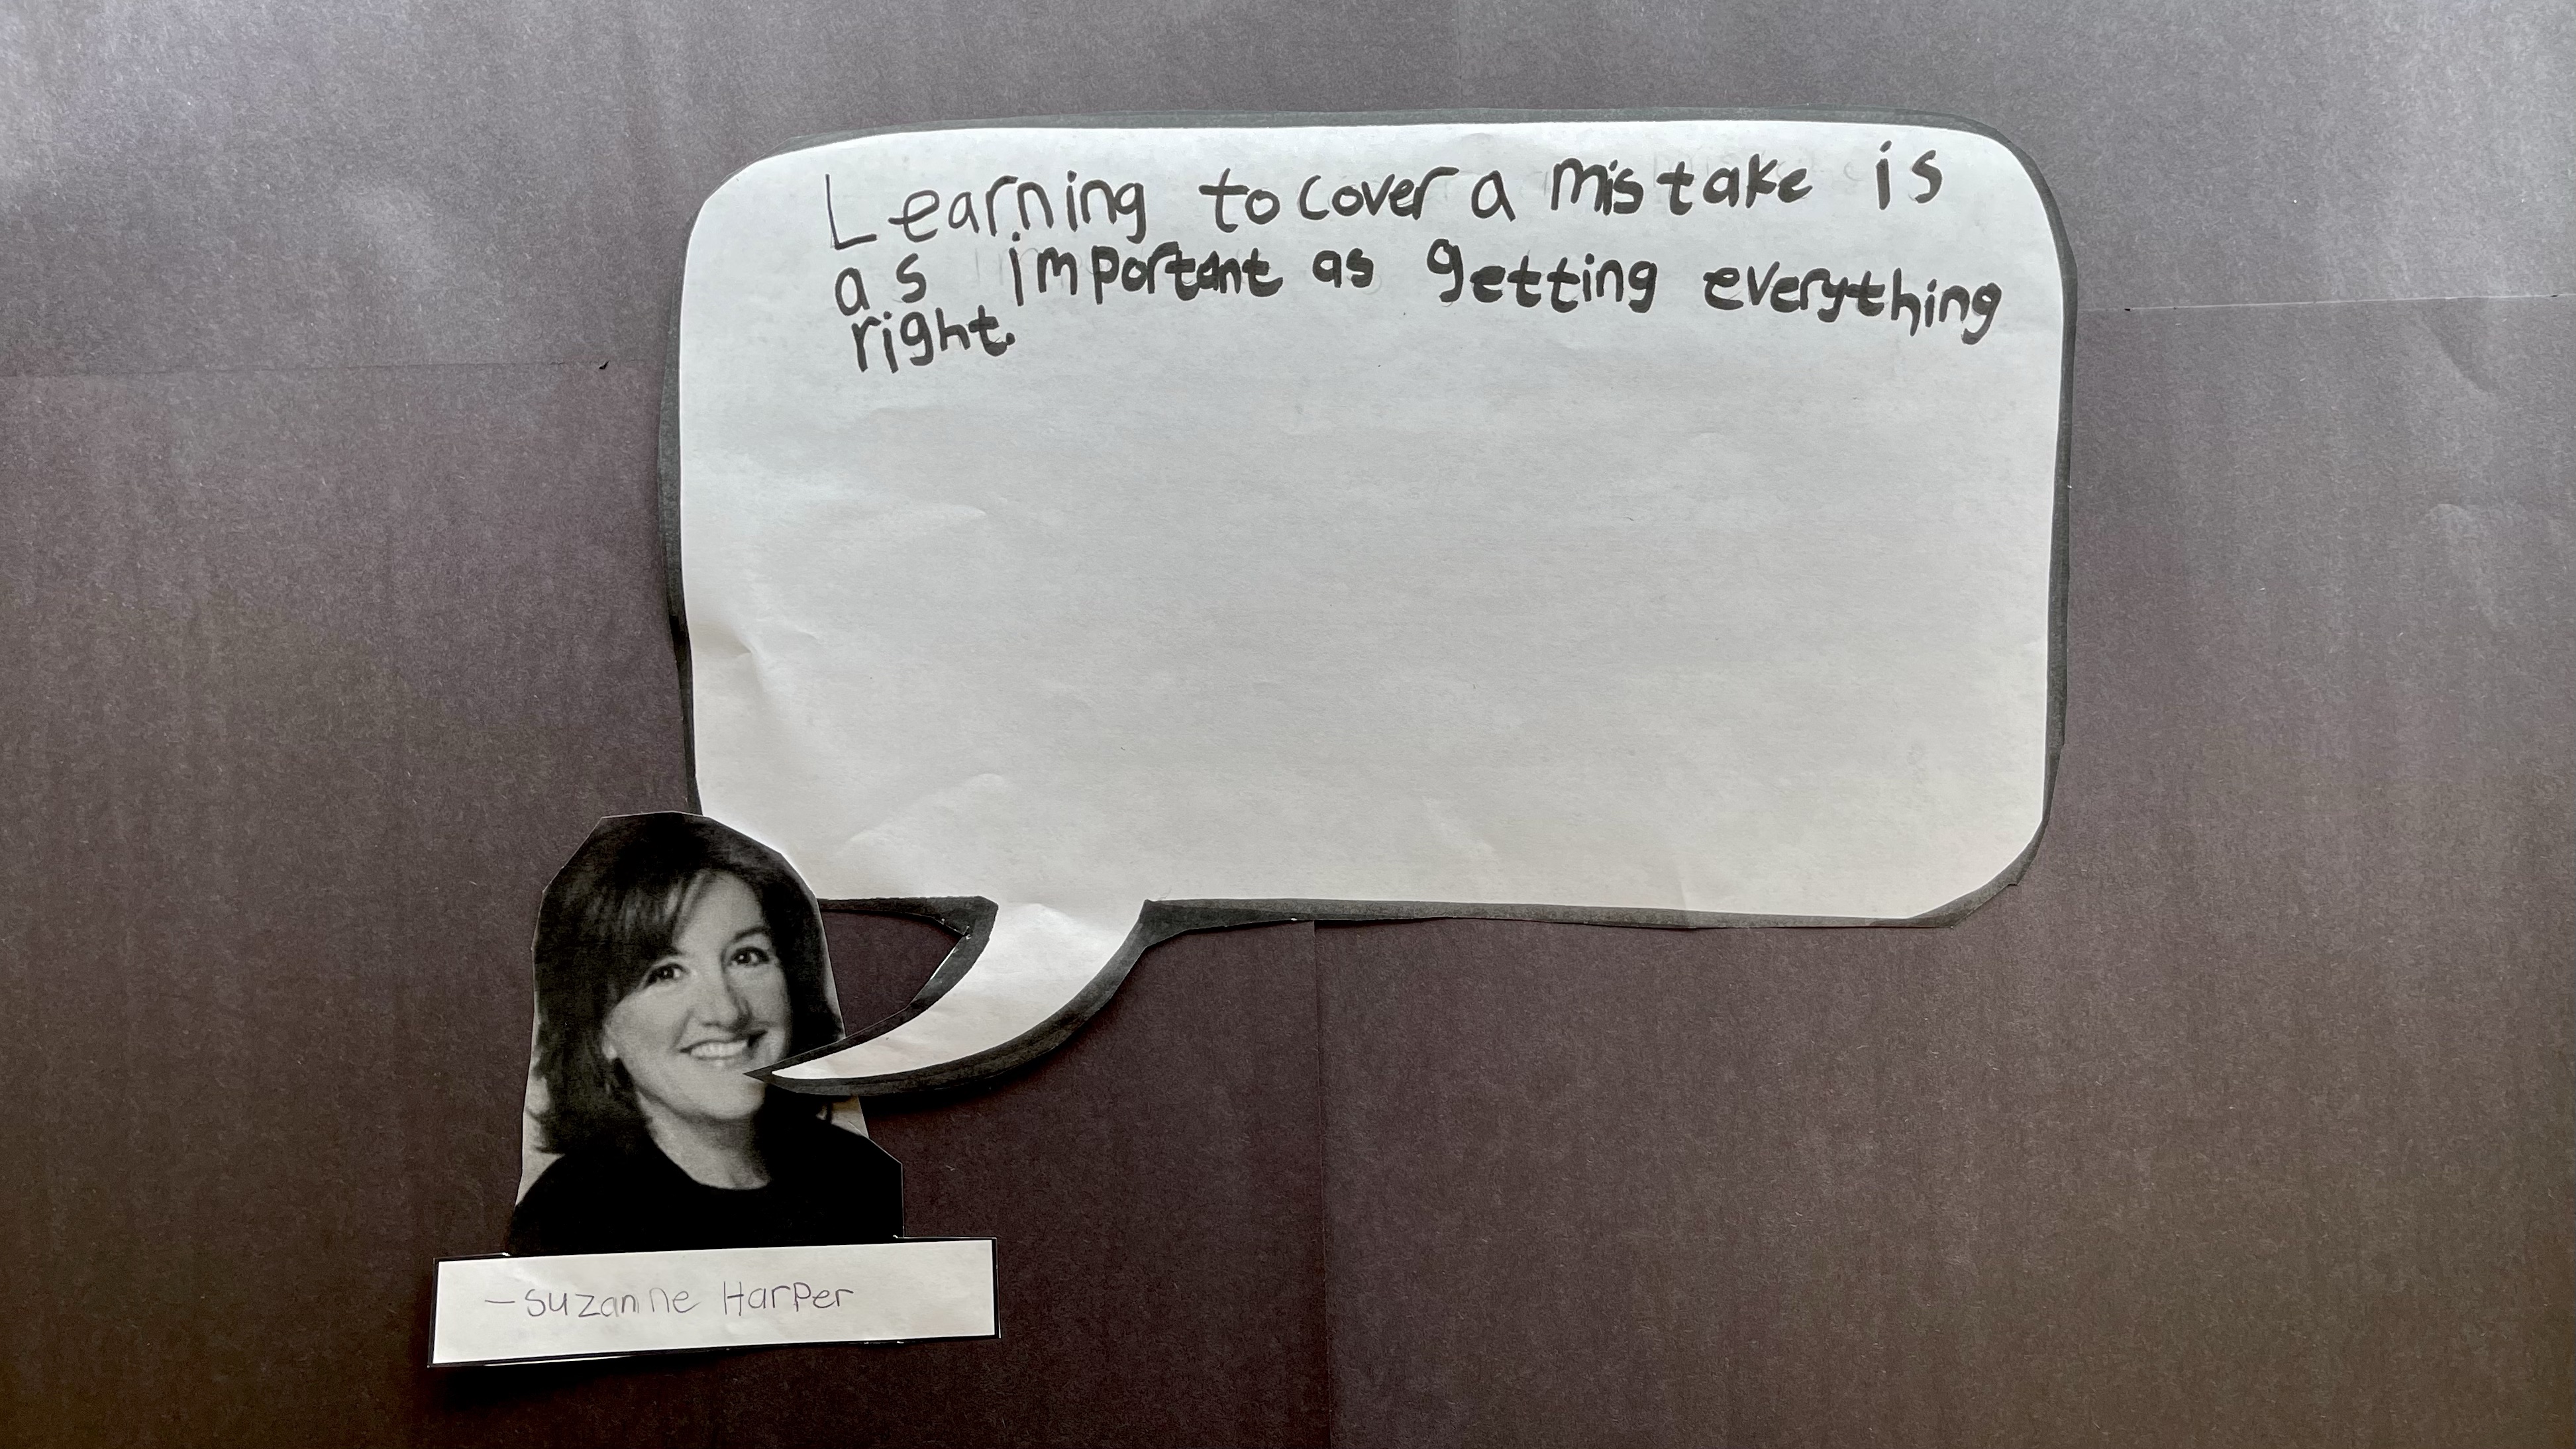 Learning to cover a mistake is
as important as getting everything
right.
-Suzanne Harper